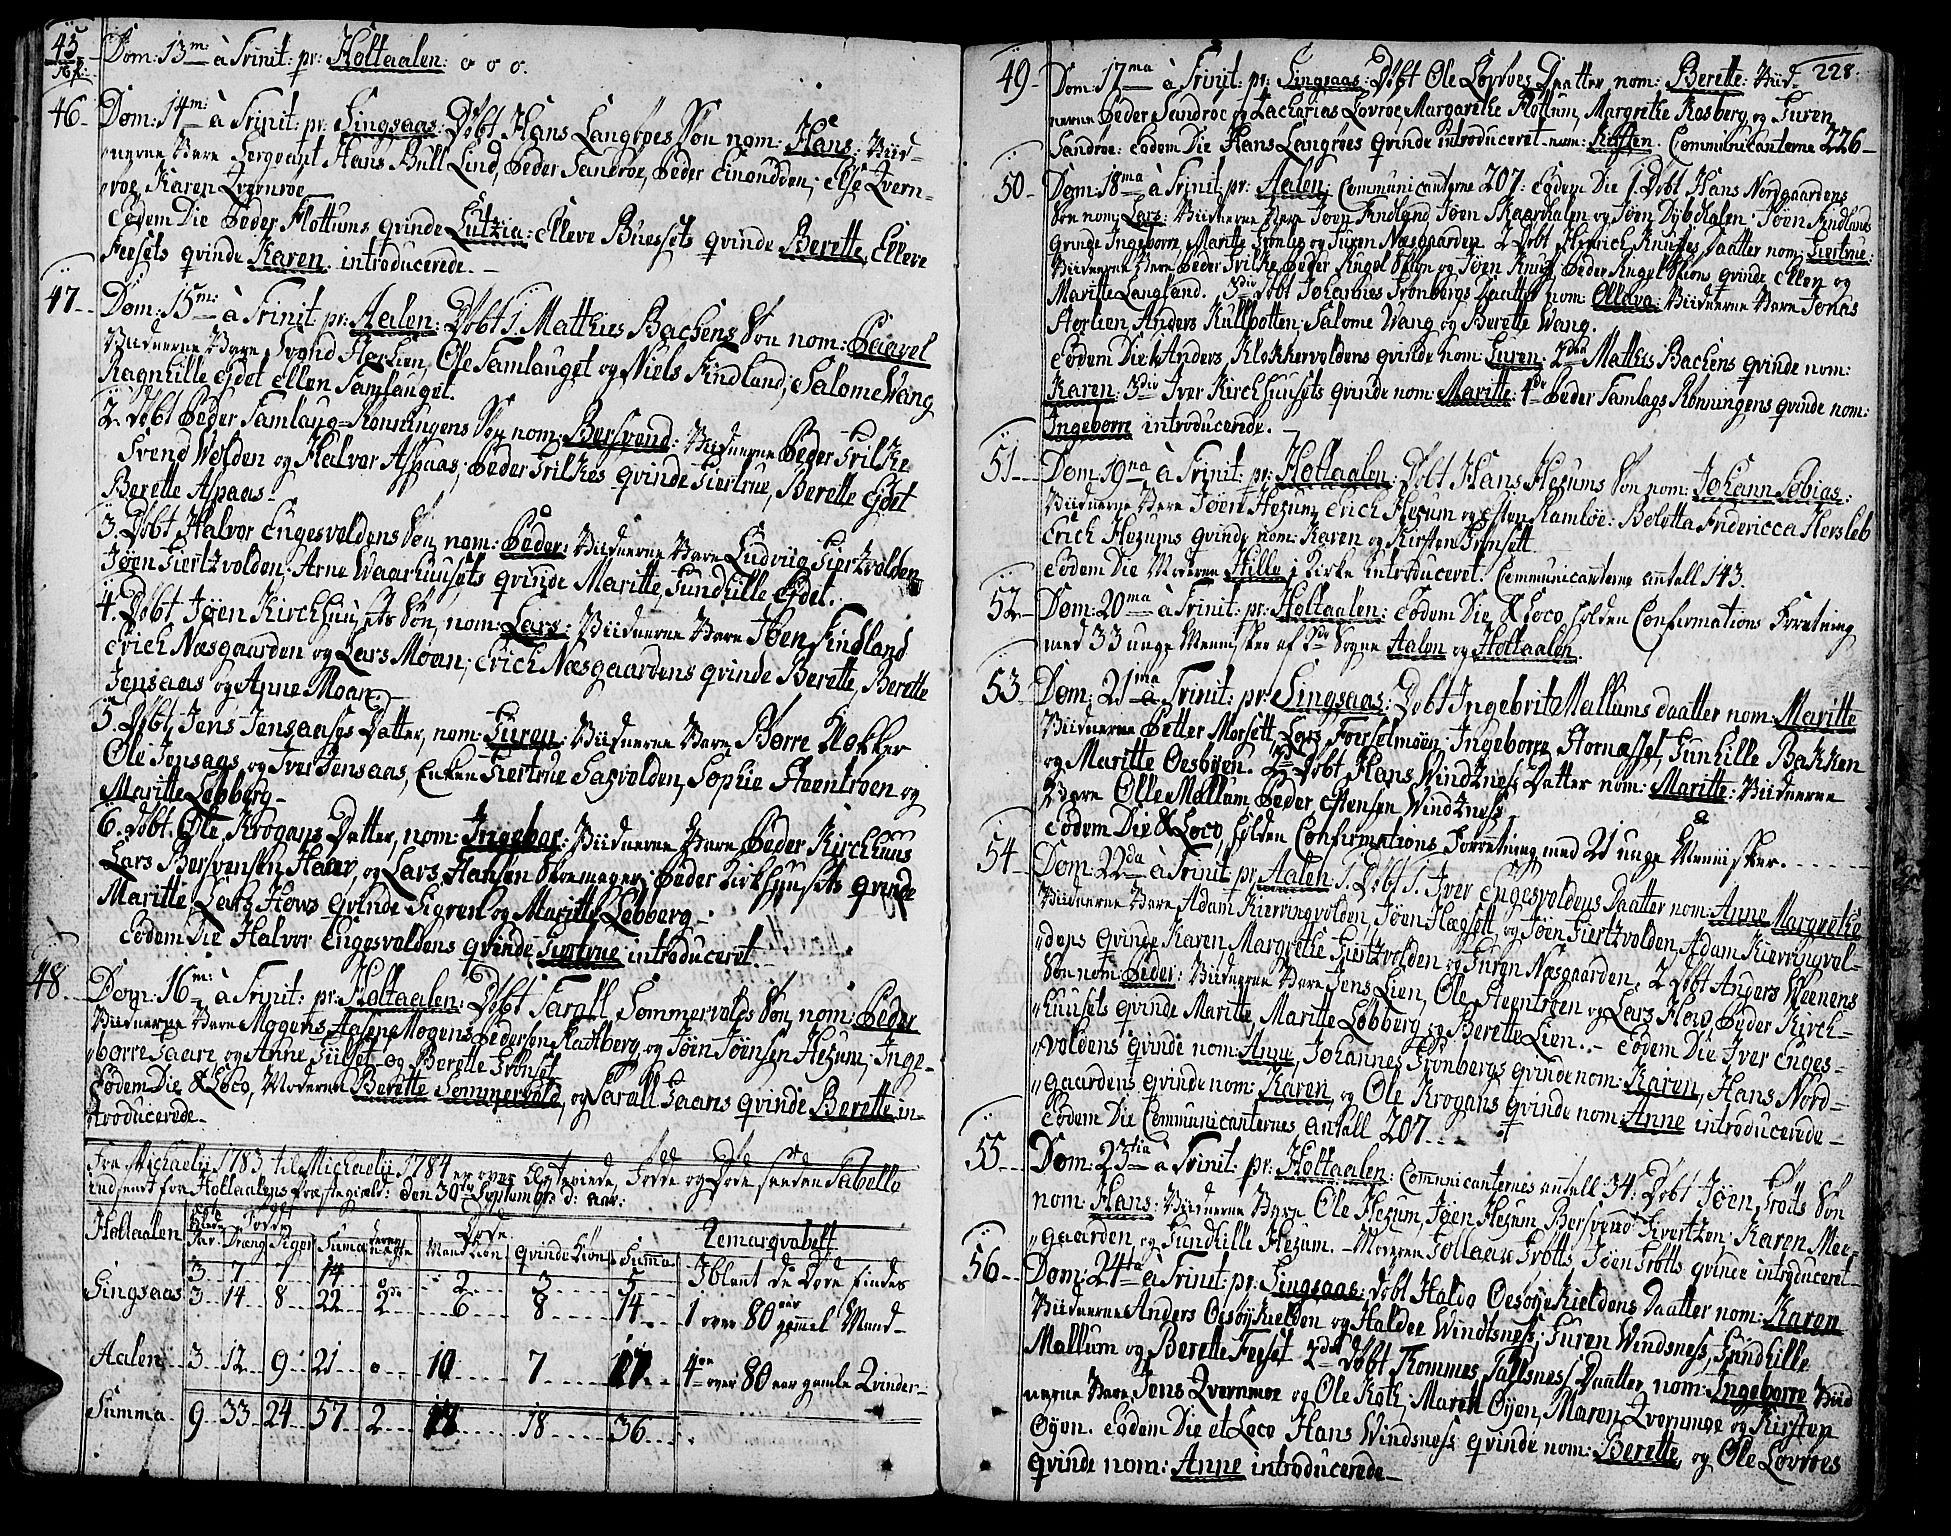 45 Dom: 13m: à Trinit: pr: Holtaalen: o o o.
46 Dom: 14m: à Trinit: pr: Singsaas: Døbt Hans Langøes Søn nom: Hans: Viid-
nerne Vare Sergeant Hans Bull Lind, Peder Sandrøe, Peder Einoudden; Else Qvern-
röe, Karen Qvernröe
Eodem Die Peder Flottums qvinde Lutzia: Elleve Buesets qvinde Berette, Elleve
Feesets qvinde Karen introducerede. -
47 Dom: 15m: à Trinit pr: Aalen: Døbt 1. Matthies Bachens Søn nom: Paavel
Viidnerne Vare Svend Horlien, Ole Samlauget og Niels Findland; Salome Wang
Ragnhille Eidet Ellen Samlauget.
2. Døbt Peder Samlaug-Rønningens Søn nom: Bersvend: Viidnerne Peder Grilke
Svend Wolden og Halvor Aspaas; Peder Grilkes qvinde Giertrue, Berette Eidet
Berette Aspaas-
3. Døbt Halvor Engesvoldens Søn, nom: Peder: Viidnerne Vare Ludvig Giertzvolden
Jøen Giertzvolden; Arne Waarhuusets qvinde Maritte, Gundhille Eidet.
4. Døbt Jøen Kirchhuusets Søn, nom: Lars: Viidnerne Vare Jøen Findland
Erich Næsgaarden og Lars Moan; Erich Næsgaardens qvinde Berette, Berette
Jensaas og Anne Moan
5. Døbt Jens Jensaases Datter, nom: Guren: Viidnerne Vare Børre Klokker
Ole Jensaas og Iver Jensaas, Enken Giertrue Sagvolden, Sophie Steentrøen og
Maritte Løbberg-
6. Døbt. Ole Krogans Datter, nom: Ingebor: Viidnerne Vare Peder Kirchuus
Lars Bersvensen Haver, og Lars Hansen Skoemager; Peder Kirkhuusets qvinde
Maritte, Lars Hows qvinde Sigren og Maritte Løbberg:
Eodem Die Halvor Engesvoldens qvinde Giertrue introduceret -
48 Dom: 16m: à Trinit: pr: Holtaalen: Døbt Tarall Sommervolds Søn, nom: Peder
Viidnerne Vare Mogens Aalen Mogens Pedersøn Kladtberg og Jøen Jøensen Hezum; Inge-
borre Gaare og Anne Gulset og Berette Grønset
Eodem Die & Loco, Moderen Berette Sommervold, og Tarall Gaares qvinde Berette in-
troducerede-
Fra Michaelii 1783 til Michaelii 1784 er over Egteviede, Fødde og Døde sendte Tabelle
indsendt fra Holtaalens Præstegield: den 30te Septembr d: aar:
Holtaalen Fødde Døde Remarqvabelt
Par. Dreng Piger Summa Mandkiøn qvindekiøn Summa
3 7 7 14 o 2 3 5 Iblant de Døde findes
Singsaas 3 14 8 22 2 6 8 14 1 over 80 aar gammel Mand-
Aalen 3 12 9 21 o 10 7 17 4 over 80 aar gamle Qvinder-
Summa 9 33 24 57 2 18 18 36
228.
49 Dom: 17ma à Trinit: pr: Singsaas: Døbt Ole Lovröes Daatter nom: Berette: Viid-
nerne Peder Sandröe og Zacharias Lovröe Margarethe Flottum, Margrethe Rosberg og Guren
Sandröe: Eodem Die Hans Langrøes qvinde introduceret nom: Kirsten. Communicanterne 226 -
50 Dom: 18ma à Trinit: pr: Aalen: Communicanterne 207: Eodem Die 1. Døbt Hans Nordgaardens
Søn nom: Lars: Viidnerne Vare Jøen Findland Jøen Skaardalen og Jøen Dybdalen; Jøen Findlands
qvinde Ingeborre, Maritte Grønlie og Guren Næsgaarden. 2. Døbt Henrich Knuffes Daatter nom: Giertrue:
Viidnerne Vare Peder Grilke, Peder Engel Skion og Jøen Knuff, Peder Engel Skions qvinde Ellen og
Maritte Langland. 3die Døbt Johannes Grønbergs Daatter nom: Ollava: Viidnerne Vare Jonas
Horlien, Anders Kullpotten; Salome Wang og Berette Wang.
Eodem Die 1. Anders Klokkervoldens qvinde nom: Guren: 2den Mathis Bachens qvinde nom:
Karen: 3die Iver Kirchhuusets qvinde nom: Maritte: 4de Peder Samlags Rønningens qvinde nom:
Ingeborre introducerede. -
51 Dom: 19na à Trinit: pr: Holtaalen: Døbt Hans Hezums Søn nom: Johann Tobias:
Viidnerne Vare Jøen Hezum, Erich Hezum og Esten Ramløe: Boletta Fridericca Hersleb
Erich Hezums qvinde nom: Karen og Kirsten Grønsett
Eodem Die Moderen Hille i Kirke introduceret. Communicanterne antall 143.
52 Dom: 20ma à Trinit: pr: Holtaalen: Eodem Die & Loco holden Confirmations Forretning
med 33 unge Mennisker af de Sogne Aalen og Holtaalen.
53 Dom: 21ma à Trinit: pr: Singsaas: Døbt Ingebrit Mallums daatter nom: Maritte
Viidnerne Petter Morsett, Lars Forselmöen, Ingeborre Stornæsset, Gunhille Bakken
og Maritte Oesbyen. 2den Døbt Hans Windznes Datter nom: Maritte: Viidnerne
Vare Olle Mallum Peder Estensen Windznes
Eodem Die & Loco holden Confirmations Forretning med 21 unge Mennisker. - - -
54 Dom: 22da à Trinit pr Aalen: 1. Døbt 1. Iver Engesvoldens Daatter nom: Anne Margrethe
Viidnerne Vare Adam Kierringvolden, Jøen Hægsett og Jøen Giertzvolden, Adam Kierringvol-
dens qvinde Karen Margrethe Giertzvolden og Guren Næsgaarden. 2 Døbt Anders Weenens
Søn nom Peder: Viidnerne Vare Jens Lien, Ole Steentrøen og Lars How, Peder Kirch-
huusets qvinde Maritte, Maritte Løbberg og Berette Lien. - Eodem Die Iver Enges-
voldens qvinde nom: Anne, Johannes Grønbergs qvinde nom: Karen, Hans Nord-
gaardens qvinde nom: Karen, og Ole Krogans qvinde nom: Anne introducerede -
Eodem Die Communicanternes antall 207 - - -
55 Dom: 23tia à Trinit: pr: Holtaalen: Communicanternes antall 34: Døbt Jøen Trøits Søn
nom: Hans: Viidnerne Vare Ole Hezum, Jøen Hezum, Bersvend Evertzen: Karen Moe-
gaarden og Gundhille Hezum. - Moderen Jøen Trøtts qvinde introduceret -
56 Dom: 24ta à Trinit: pr: Singsaas: Døbt Haldo Oesøyekieldens Daatter nom: Karen
Viidnerne Anders Oesøykielden og Haldoe Windtsness, Guren Windsness, Gundhille
Mallum og Berette Feeset 2den Døbt Tommes Tallsnes Daatter, nom: Ingeborre Viid
nerne Vare Jens Qvernmoe og Ole Roth; Marett Öyen, Maren Qvernmoe og Kirsten
Öyen. Eodem Die et Loco Hans Windsness qvinde nom: Berette, og Ole Lovroes
qvinde nom: Anne introducerede -